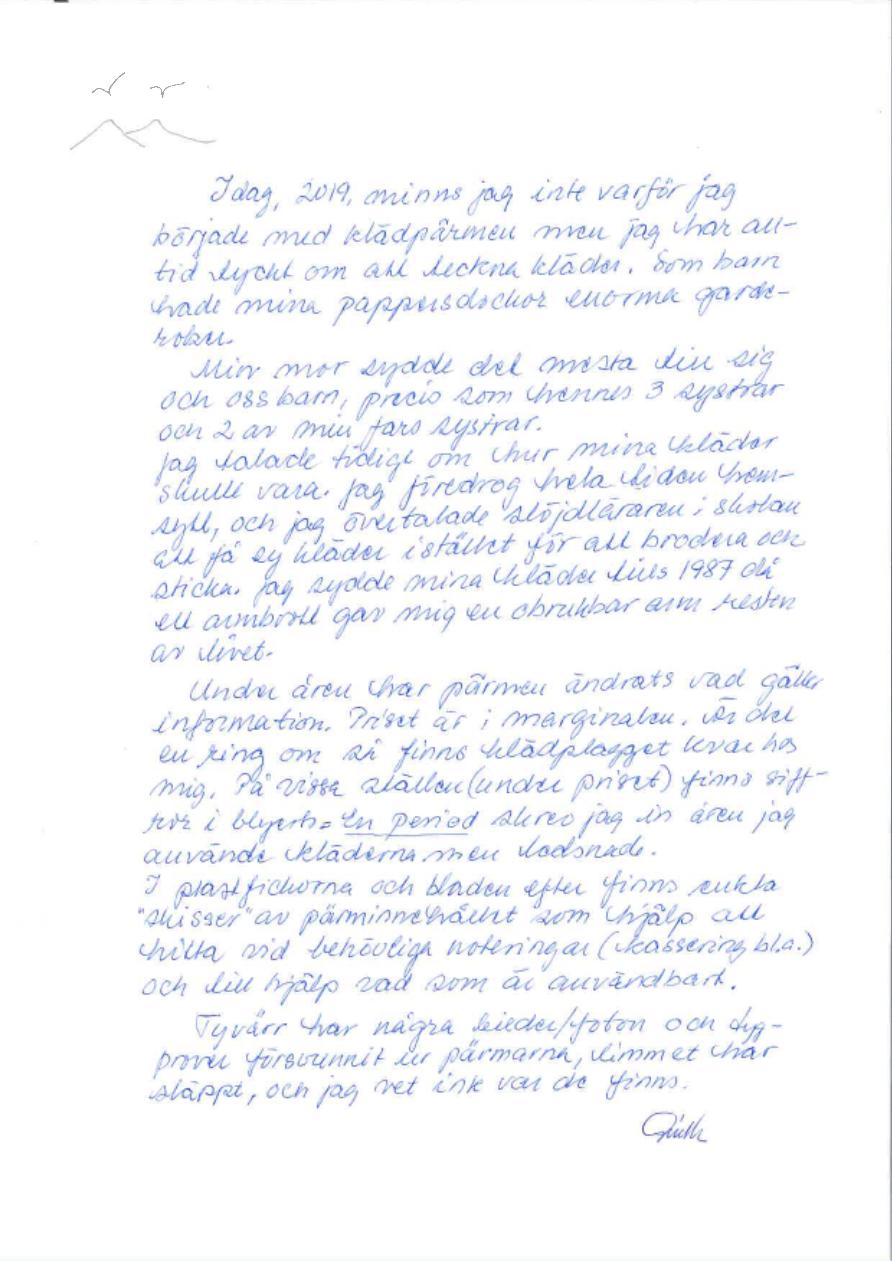 Idag, 2019, minns jag inte varför jag
började med klädpärmen men jag har all-
tid tyckt om att teckna kläder. Som barn
hade mina pappersdockor enorma garde-
rober.
Min mor sydde det mesta till sig
och oss barn, precis som hennes 3 systrar
och 2 av min fars systrar.
Jag talade tidigt om hur mina kläder
skulle vara. Jag föredrog hela tiden hem-
sytt, och jag övertalade slöjdläraren i skolan
att få sy kläder istället för att brodera och
sticka. Jag sydde mina kläder tills 1987 då
ett armbrott gav mig en obrukbar arm resten
av livet.
Under åren har pärmen ändrats vad gäller
information. Priset är i marginalen. Är det
en ring om så finns klädplagget kvar hos
mig. På vissa ställen (under priset) finns siff-
ror i blyerts = En period skrev jag in åren jag
använde kläderna men ledsnade.
I plastfickorna och bladen efter finns enkla
"skisser" av pärminnehållet som hjälp att
hitta vid behövliga noteringar (kassering bl.a.)
och till hjälp vad som är användbart.
Tyvärr har några bilder/foton och tyg-
prover försvunnit ur pärmarna, limmet har
släppt, och jag vet inte var de finns.